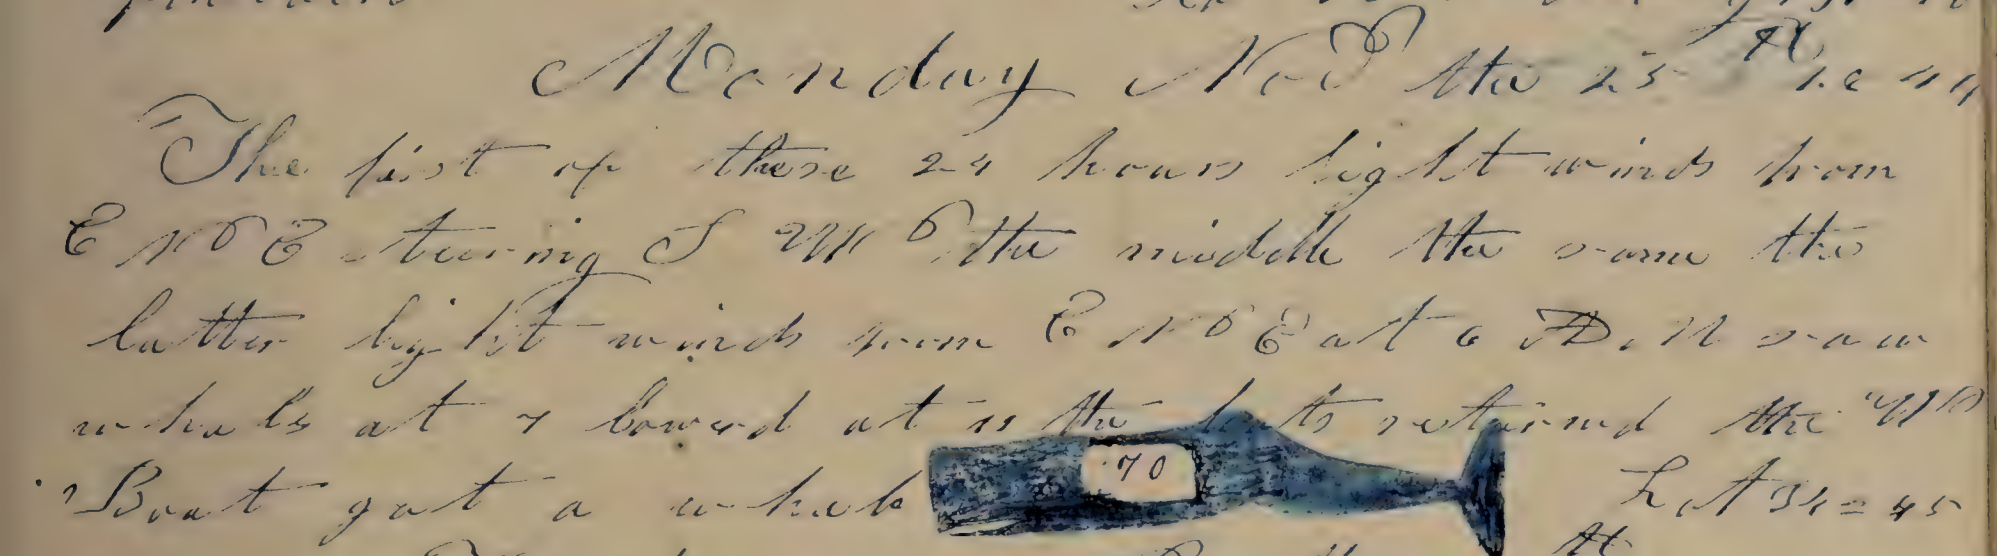 Monday Nov the 25th 1844
The first of these 24 hours light winds from
E N E steering S W the middle the same the
latter light winds from E N E at 6 A. M saw
whals at 7 lowerd at 11 the bots returnd the
Boat got a whale 70 Lat 34=45